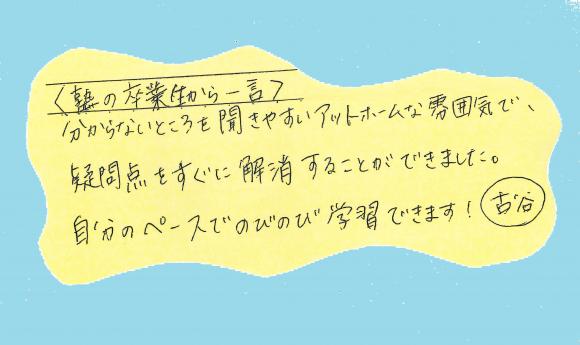 〈塾の卒業生から一言〉
分からないところを聞きやすいアットホームな雰囲気で、
疑問点をすぐに解消することができました。
自分のペースでのびのび学習できます！ 古谷